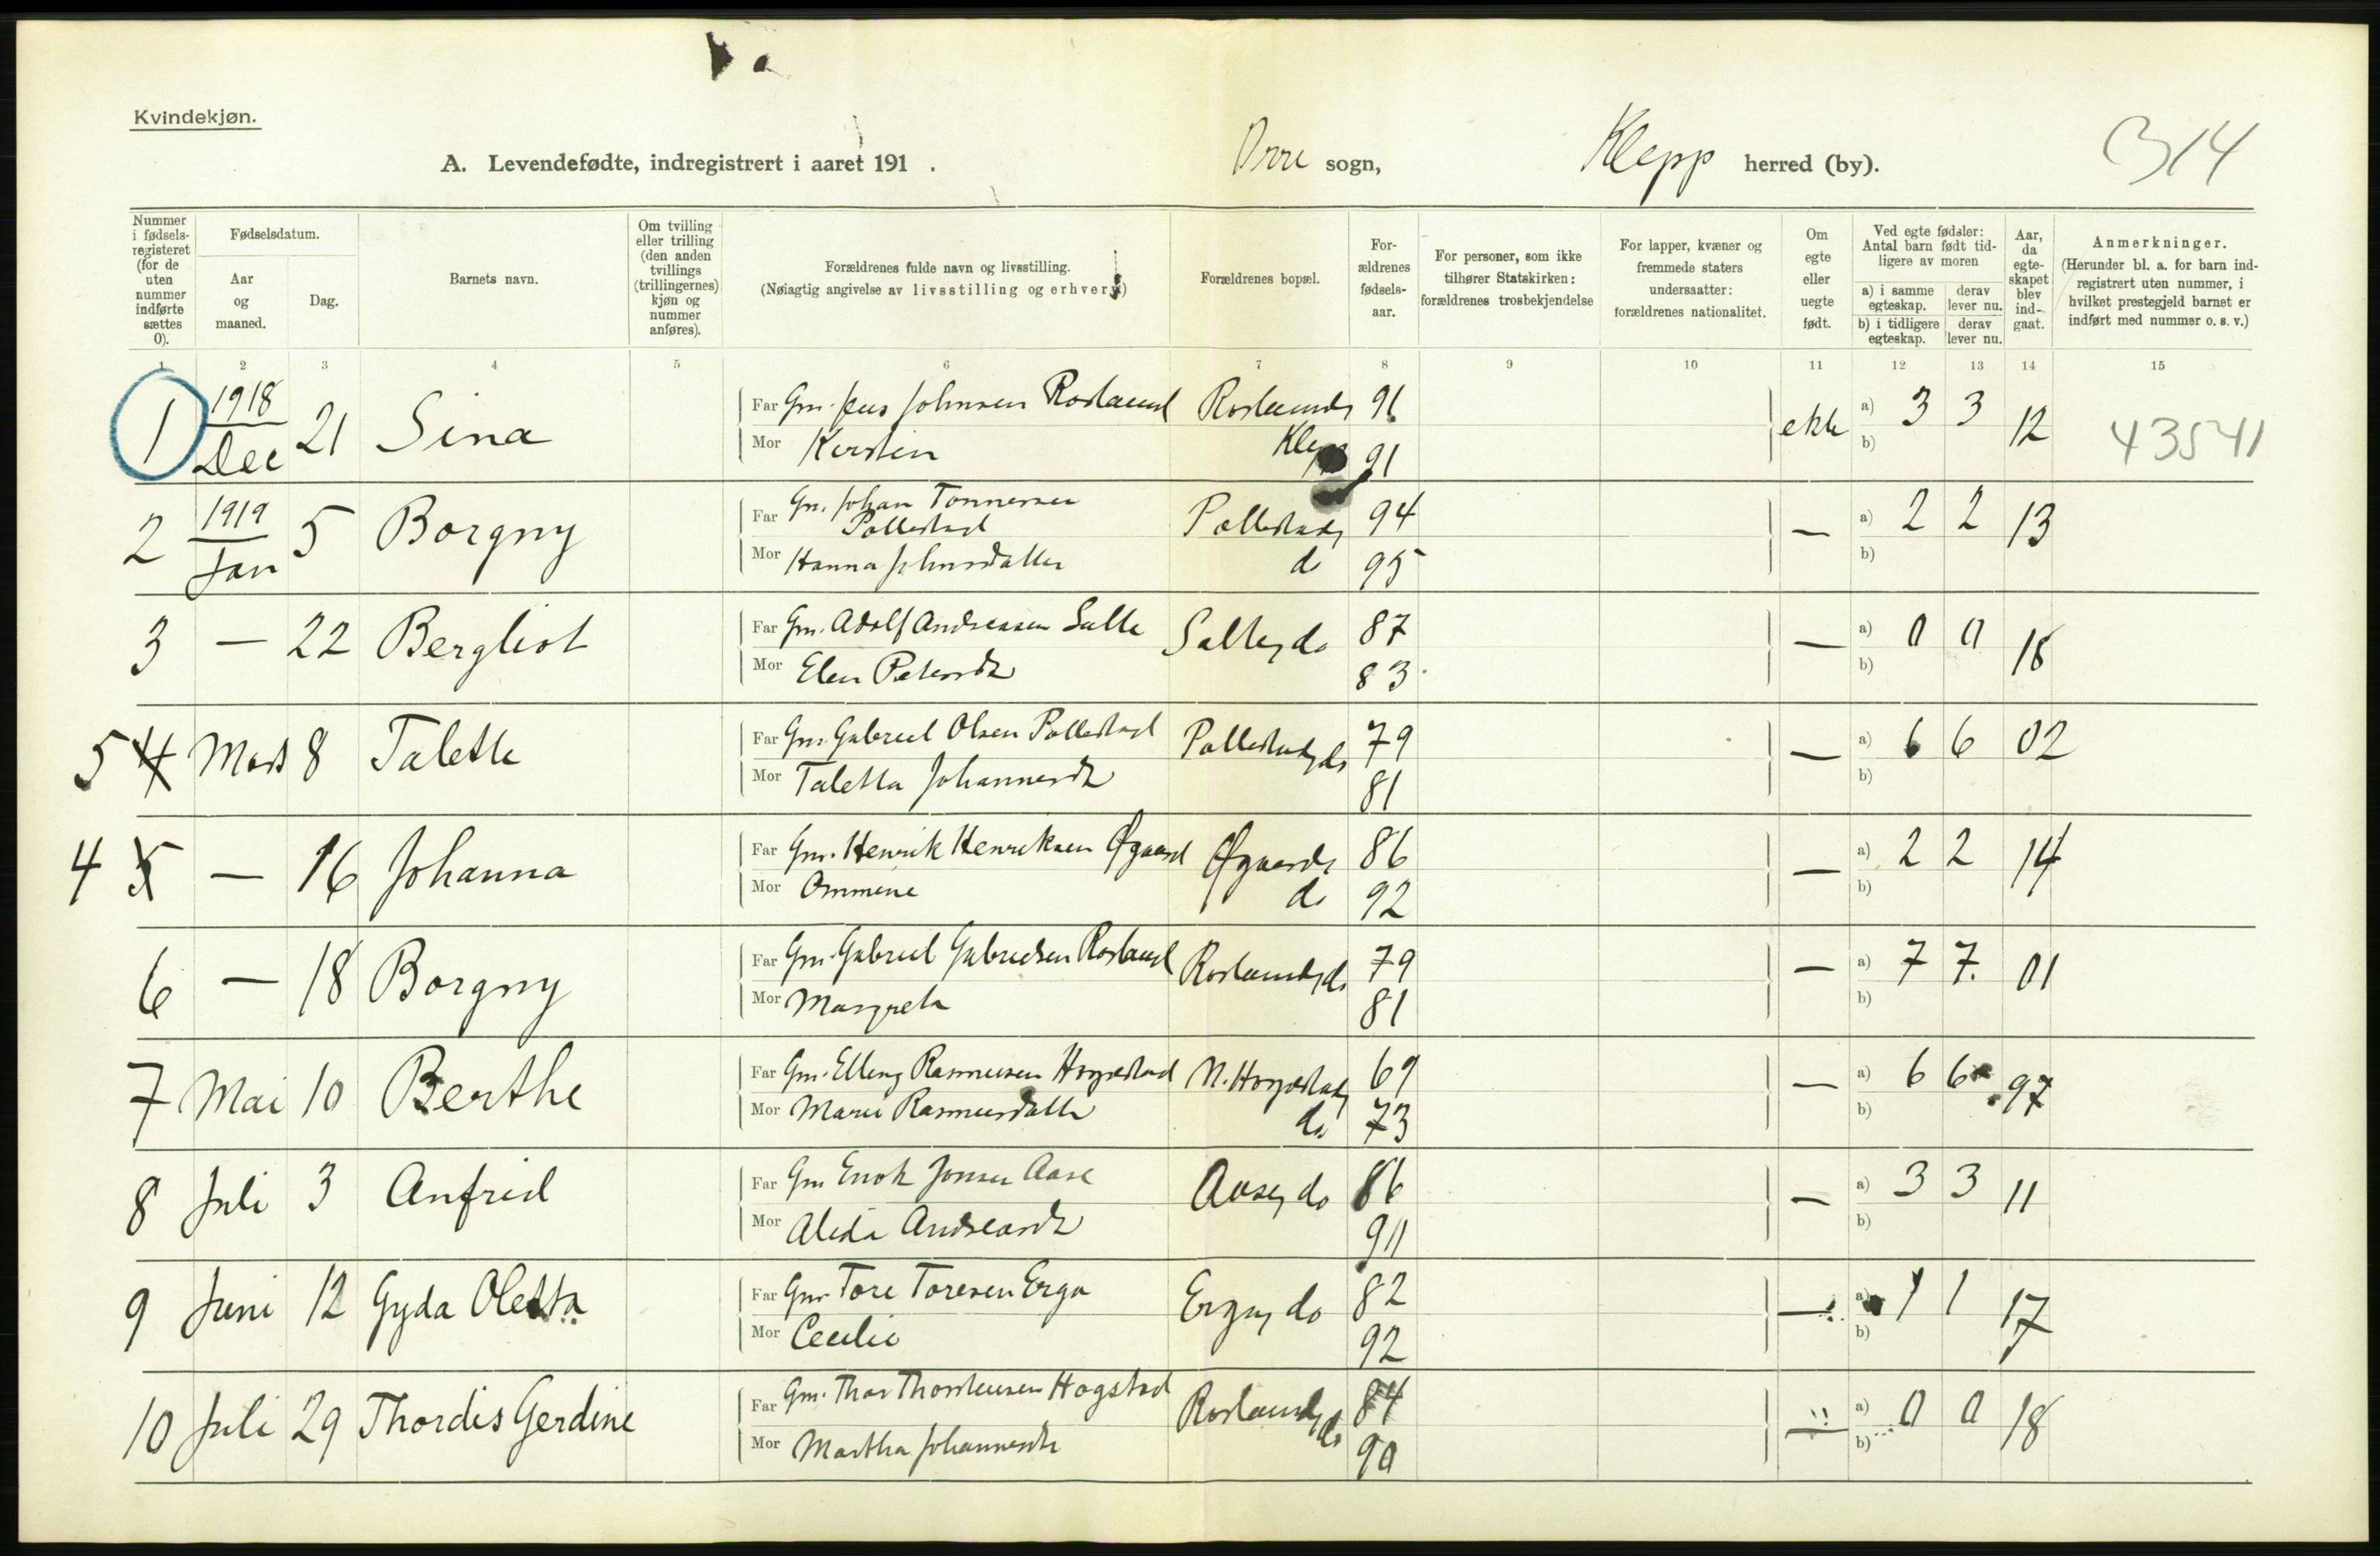 Kvindekjøn.
A. Levendefødte, indregistrert i aaret 191 . Orre sogn, Klepp herred (by). 314
Nummer i fødselsregisteret (for de uten nummer indførte sættes 0).
Fødselsdatum.
Aar og maaned.
Dag.
Barnets navn.
Om tvilling eller trilling (den anden tvillings (trillingernes) kjøn og nummer anføres).
Forældrenes fulde navn og livsstilling.
(Nøiagtig angivelse av livsstilling og erhverv.)
Forældrenes bopæl.
Forældrenes fødselsaar.
For personer, som ikke tilhører Statskirken: forældrenes trosbekjendelse
For lapper, kvæner og fremmede staters undersaatter: forældrenes nationalitet.
Om egte eller uegte født.
Ved egte fødsler: Antal barn født tidligere av moren
a) i samme egteskap.
derav lever nu.
b) i tidligere egteskap.
derav lever nu.
Aar, da egteskapet blev indgaat.
Anmerkninger.
(Herunder bl. a. for barn indregistrert uten nummer, i hvilket prestegjeld barnet er indført med nummer o. s. v.)
1 2 3 4 5 6 7 8 9 10 11 12 13 14 15
1 1918 Dec 21 Sina Far Gm. Jens Johnsen Rosland Rosland, 91 ekte a) 3 3 12 43541
Mor Kirsten Klepp 91 b)
2 1919 Jan 5 Borgny Far Gm. Johan Tønnessen Pollestad Pollestad, 94 — a) 2 2 13
Mor Hanna Johnsdatter do 95 b)
3 — 22 Bergliot Far Gm. Adolf Andreasen Salte Salte, do 87 — a) 0 0 18
Mor Elen Petersdtr 83 b)
5 4 Mars 8 Talette Far Gm. Gabriel Olsen Pollestad Pollestad, do 79 — a) 6 6 02
Mor Taletta Johannesdtr 81 b)
4 5 — 16 Johanna Far Gm. Henrik Henriksen Øgaard Øgaard, 86 — a) 2 2 14
Mor Ommine do 92 b)
6 — 18 Borgny Far Gm. Gabriel Gabrielsen Rosland Rosland, do 79 — a) 7 7 01
Mor Margreta 81 b)
7 Mai 10 Berthe Far Gm. Elling Rasmussen Hognestad N. Hognestad, 69 — a) 6 6 97
Mor Marie Rasmusdatter do 73 b)
8 Juli 3 Anfrid Far Gm Enok Jonsen Aase Aase, do 86 — a) 3 3 11
Mor Alida Andreasdtr 90 b)
9 Juni 12 Gyda Oletta Far Gm Tore Toresen Erga Erga, do 82 — a) 1 1 17
Mor Cecilie 92 b)
10 Juli 29 Thordis Gerdine Far Gm. Thor Thorstensen Hogstad Rosland, do 84 — a) 0 0 18
Mor Martha Johannesdtr 90 b)